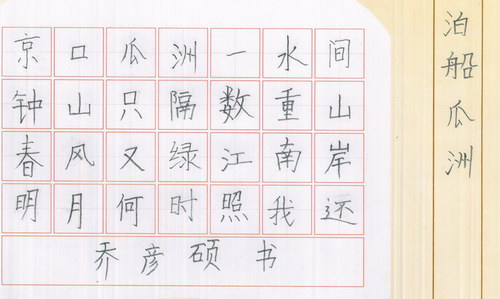 泊船瓜洲
京口瓜洲一水间
钟山只隔数重山
春风又绿江南岸
明月何时照我还
乔彦硕书